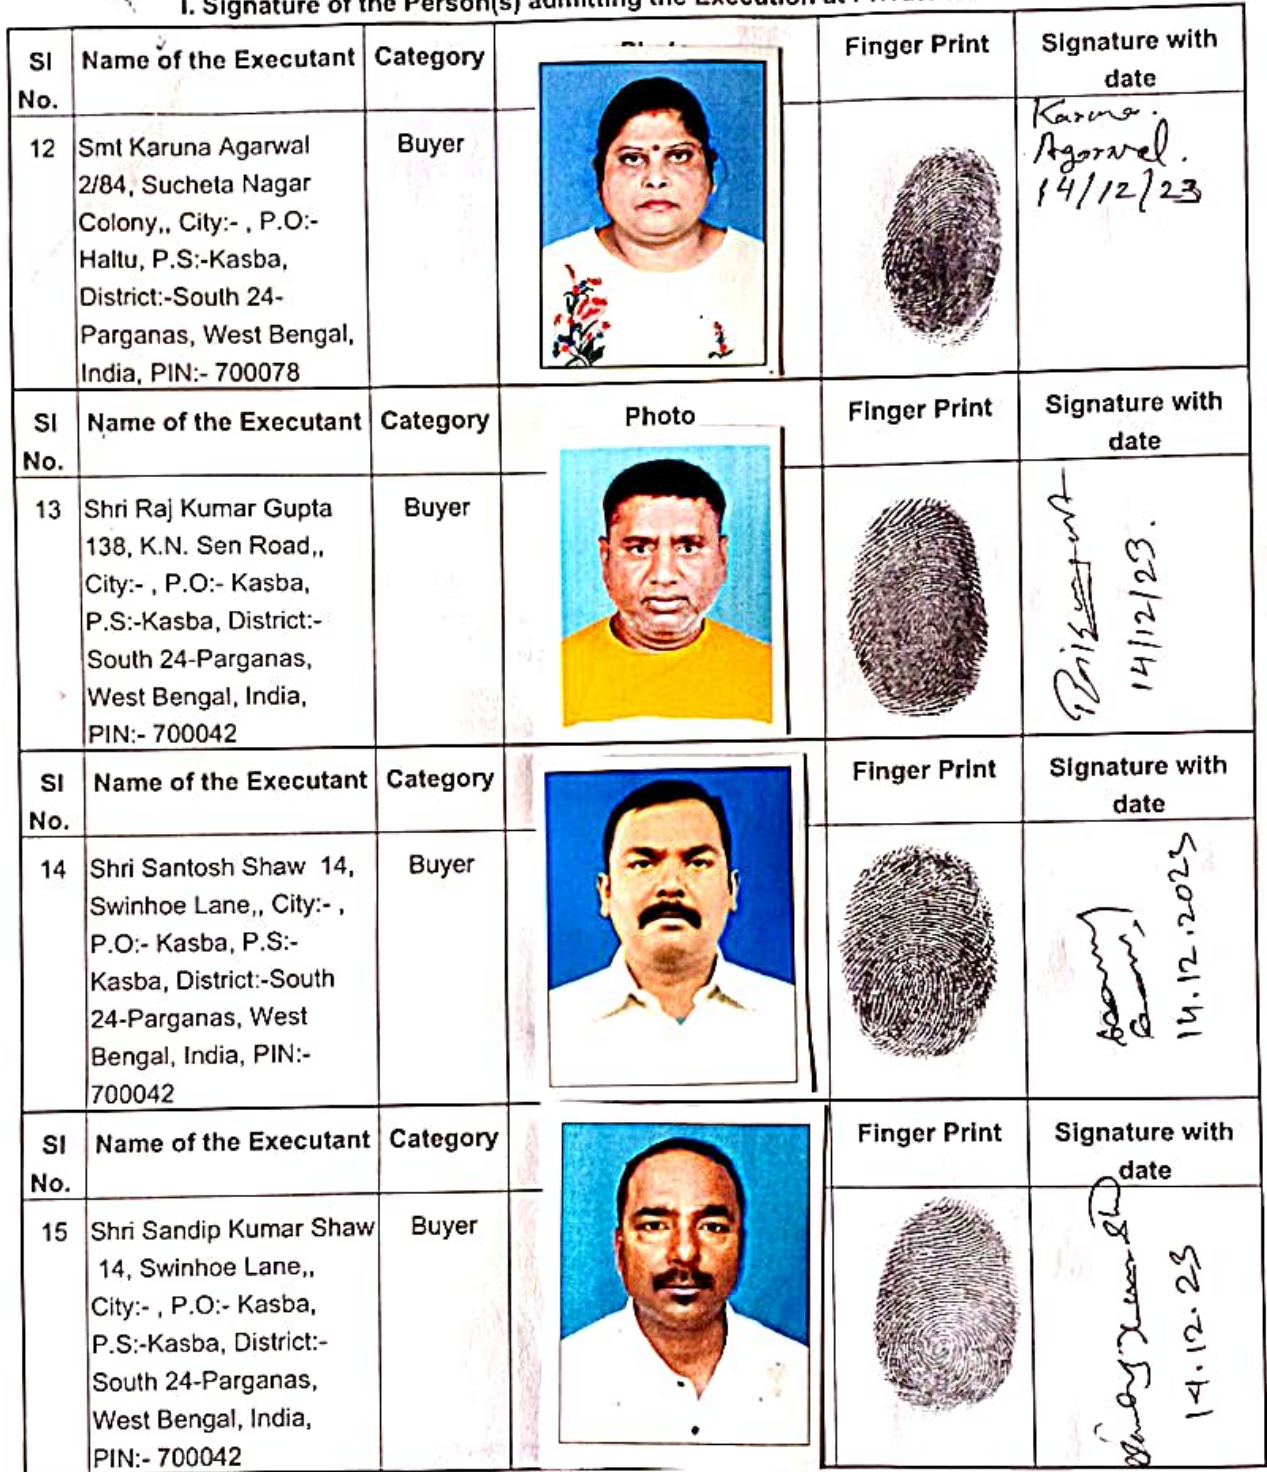 I. Signature of the Person(s) admitting the Execution at
Sl No. Name of the Executant Category Finger Print Signature with date
12 Smt Karuna Agarwal Buyer
2/84, Sucheta Nagar
Colony,, City:- , P.O:-
Haltu, P.S:-Kasba,
District:-South 24-
Parganas, West Bengal,
India, PIN:- 700078
Karuna.
Agarwal.
14/12/23
Sl No. Name of the Executant Category Photo Finger Print Signature with date
13 Shri Raj Kumar Gupta Buyer
138, K.N. Sen Road,,
City:- , P.O:- Kasba,
P.S:-Kasba, District:-
South 24-Parganas,
West Bengal, India,
PIN:- 700042
14/12/23.
Sl No. Name of the Executant Category Finger Print Signature with date
14 Shri Santosh Shaw 14, Buyer
Swinhoe Lane,, City:- ,
P.O:- Kasba, P.S:-
Kasba, District:-South
24-Parganas, West
Bengal, India, PIN:-
700042
14.12.2023
Sl No. Name of the Executant Category Finger Print Signature with date
15 Shri Sandip Kumar Shaw Buyer
14, Swinhoe Lane,,
City:- , P.O:- Kasba,
P.S:-Kasba, District:-
South 24-Parganas,
West Bengal, India,
PIN:- 700042
14.12.23